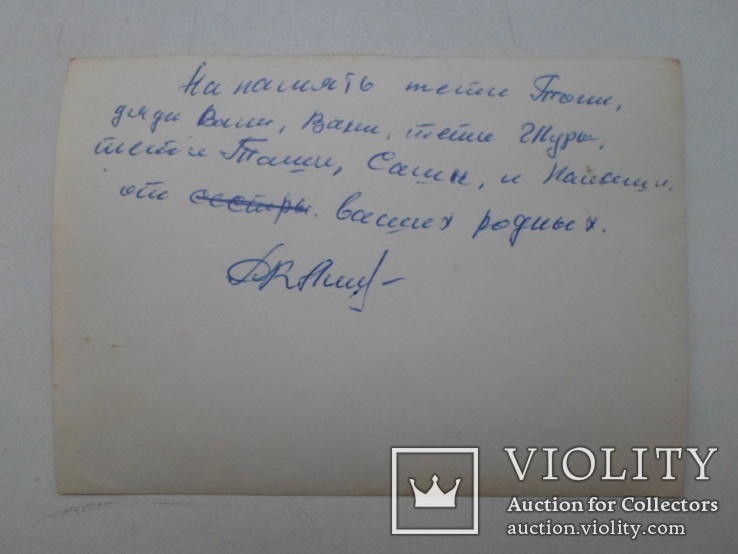 На память тети Тони,
дяди Вали, Вани, тети Шуры,
тети Таши, Саши, и Наташи.
от сестры. ваших родных.
VIOLITY
Auction for Collectors
auction.violity.com